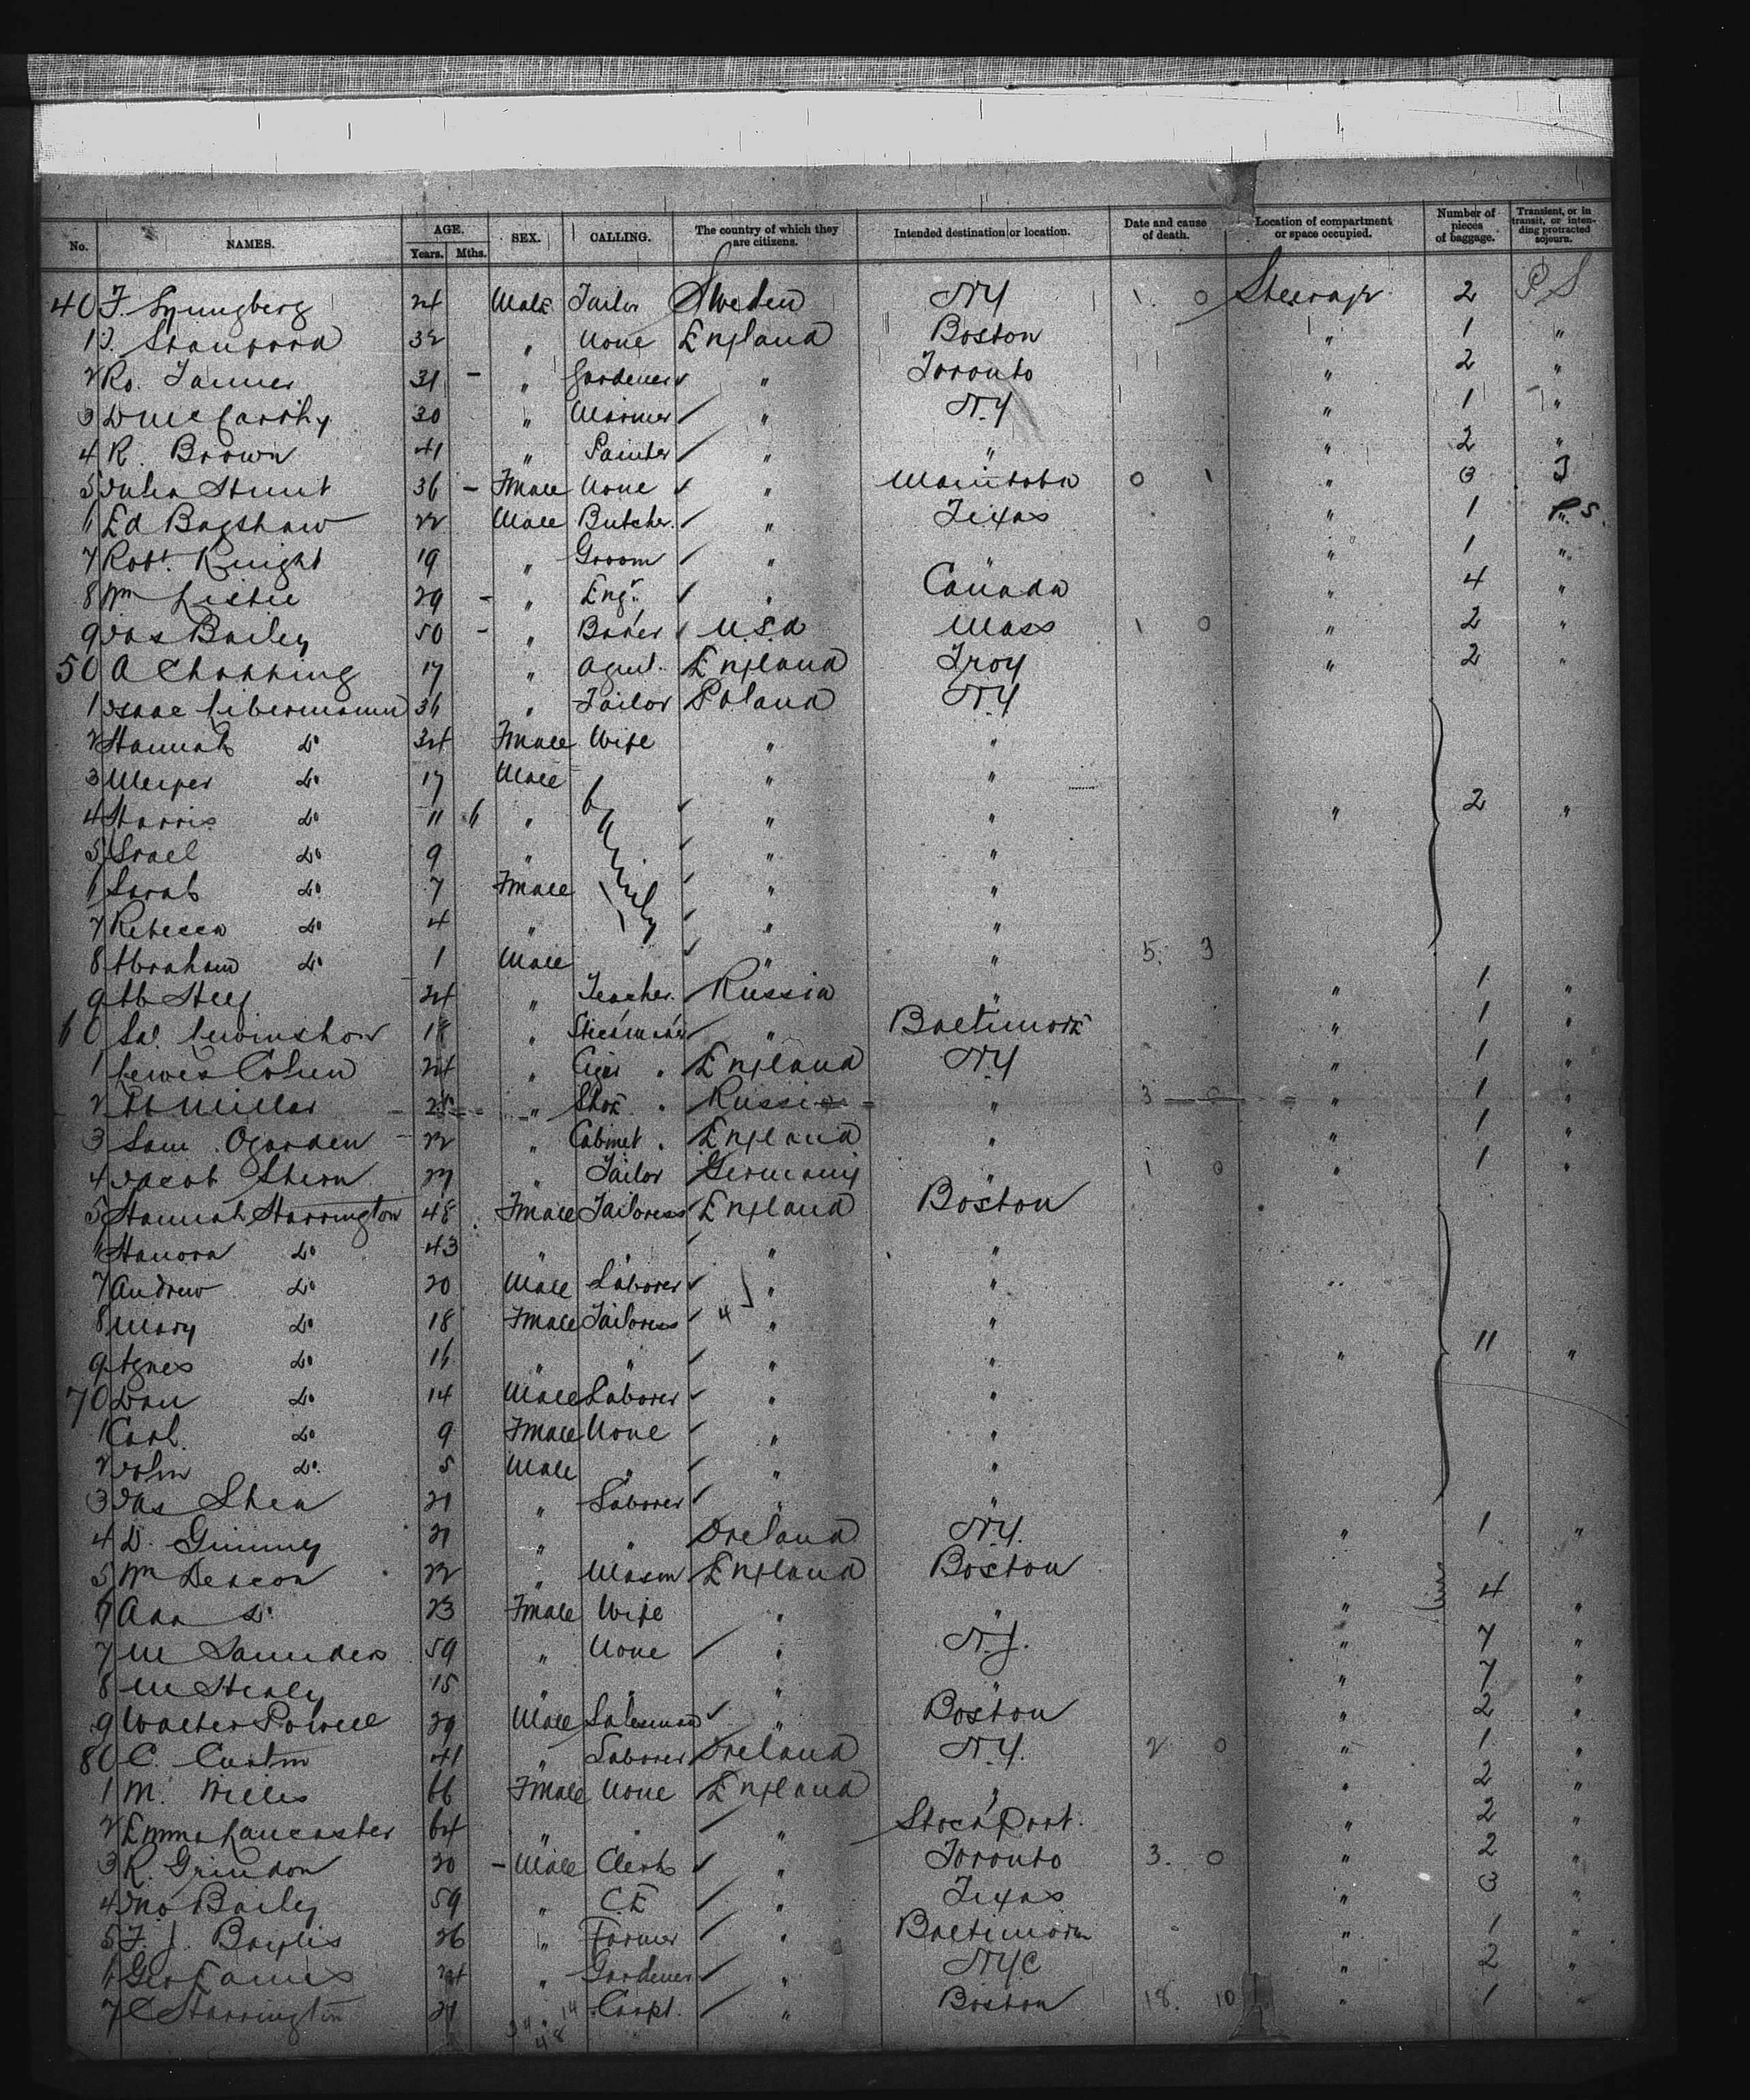 No. NAMES. AGE. Years. Mths. SEX. CALLING. The country of which they are citizens. Intended destination or location. Date and cause of death. Location of compartment or space occupied. Number of pieces of baggage. Transient, or in transit, or intending protracted sojourn.
40 F. Ljungberg 24 Male Tailor Sweden NY 1. 0 Steerage 2 P S
1 32 " None England Boston " 1 "
2 Ro. Tanner 31 - " Gardener " Toronto " 2 "
3 D McCarthy 30 " " N.Y " 1 "
4 R. Brown 41 " Painter " " " 2 "
5 Julia Hunt 36 - Fmale None " Manitoba 0 1 " 3 T
6 Ed Bagshaw 22 Male Butcher. " Texas " 1 P. S.
7 Robt. Knight 19 " Groom " " " 1 "
8 Wm Leslie 29 - " Engr. " Canada " 4 "
9 Jas Bailey 50 - " Baker U.S.A Mass 1 0 " 2 "
50 A Chopping 17 " Agent. England Troy " 2 "
1 Isaac Libermann 36 " Tailor Poland N.Y
2 Hannah Do 34 Fmale Wife " "
3 Do 17 Male " "
4 Harris Do 11 6 " Family " " " 2 "
5 Israel Do 9 " " "
6 Sarah Do 7 Fmale " "
7 Rebecca Do 4 " " "
8 Abraham Do 1 Male " " 5. 3
9 24 " Teacher. Russia " " 1 "
60 18 " " Baltimore " 1 "
1 Lewis Cohen 24 " Cigar " England N.Y " 1 "
2 Ab Millar " Shoe " Russia " 3 " 1 "
3 Sam. Ogarden 22 " Cabinet " England " " 1 "
4 Jacob Stern " Tailor Germany " 1 0 " 1 "
5 Hannah Harrington 48 Fmale Tailoress England Boston
6 Hanora Do 43 " " " "
7 Andrew Do 20 Male Laborer " "
8 Mary Do 18 Fmale Tailoress 4 " "
9 Agnes Do 16 " " " " " 11 "
70 Dan Do 14 Male Laborer " "
1 Do 9 Fmale None " "
2 John Do. 5 Male " " "
3 Jas Shea 21 " Laborer " "
4 D. 21 " " Ireland N.Y. " 1 "
5 Wm Deacon 22 " Mason England Boston
6 Ann Do 23 Fmale Wife " " " 4 "
7 M Saunders 59 " None " N.J. " 7 "
8 M Healy 15 " " " " " 7 "
9 Walter Powell 29 Male Salesman " Boston " 2 "
80 C. Curtin 41 " Laborer Ireland N.Y. 2 0 " 1 "
1 M. Willis 66 Fmale None England " " 2 "
2 Emma Lancaster 64 " " " Stock Port. " 2 "
3 R. Grindon 20 - Male Clerk " Toronto 3. 0 " 2 "
4 Jno Bailey 59 " C.E " Texas " 3 "
5 F. J. Baylis 26 " Farmer " Baltimore " 1 "
6 Geo Eames 24 " Gardener " NYC " 2 "
7 C Harrington 21 Carpt. " Boston 18. 10 " 1 "
48